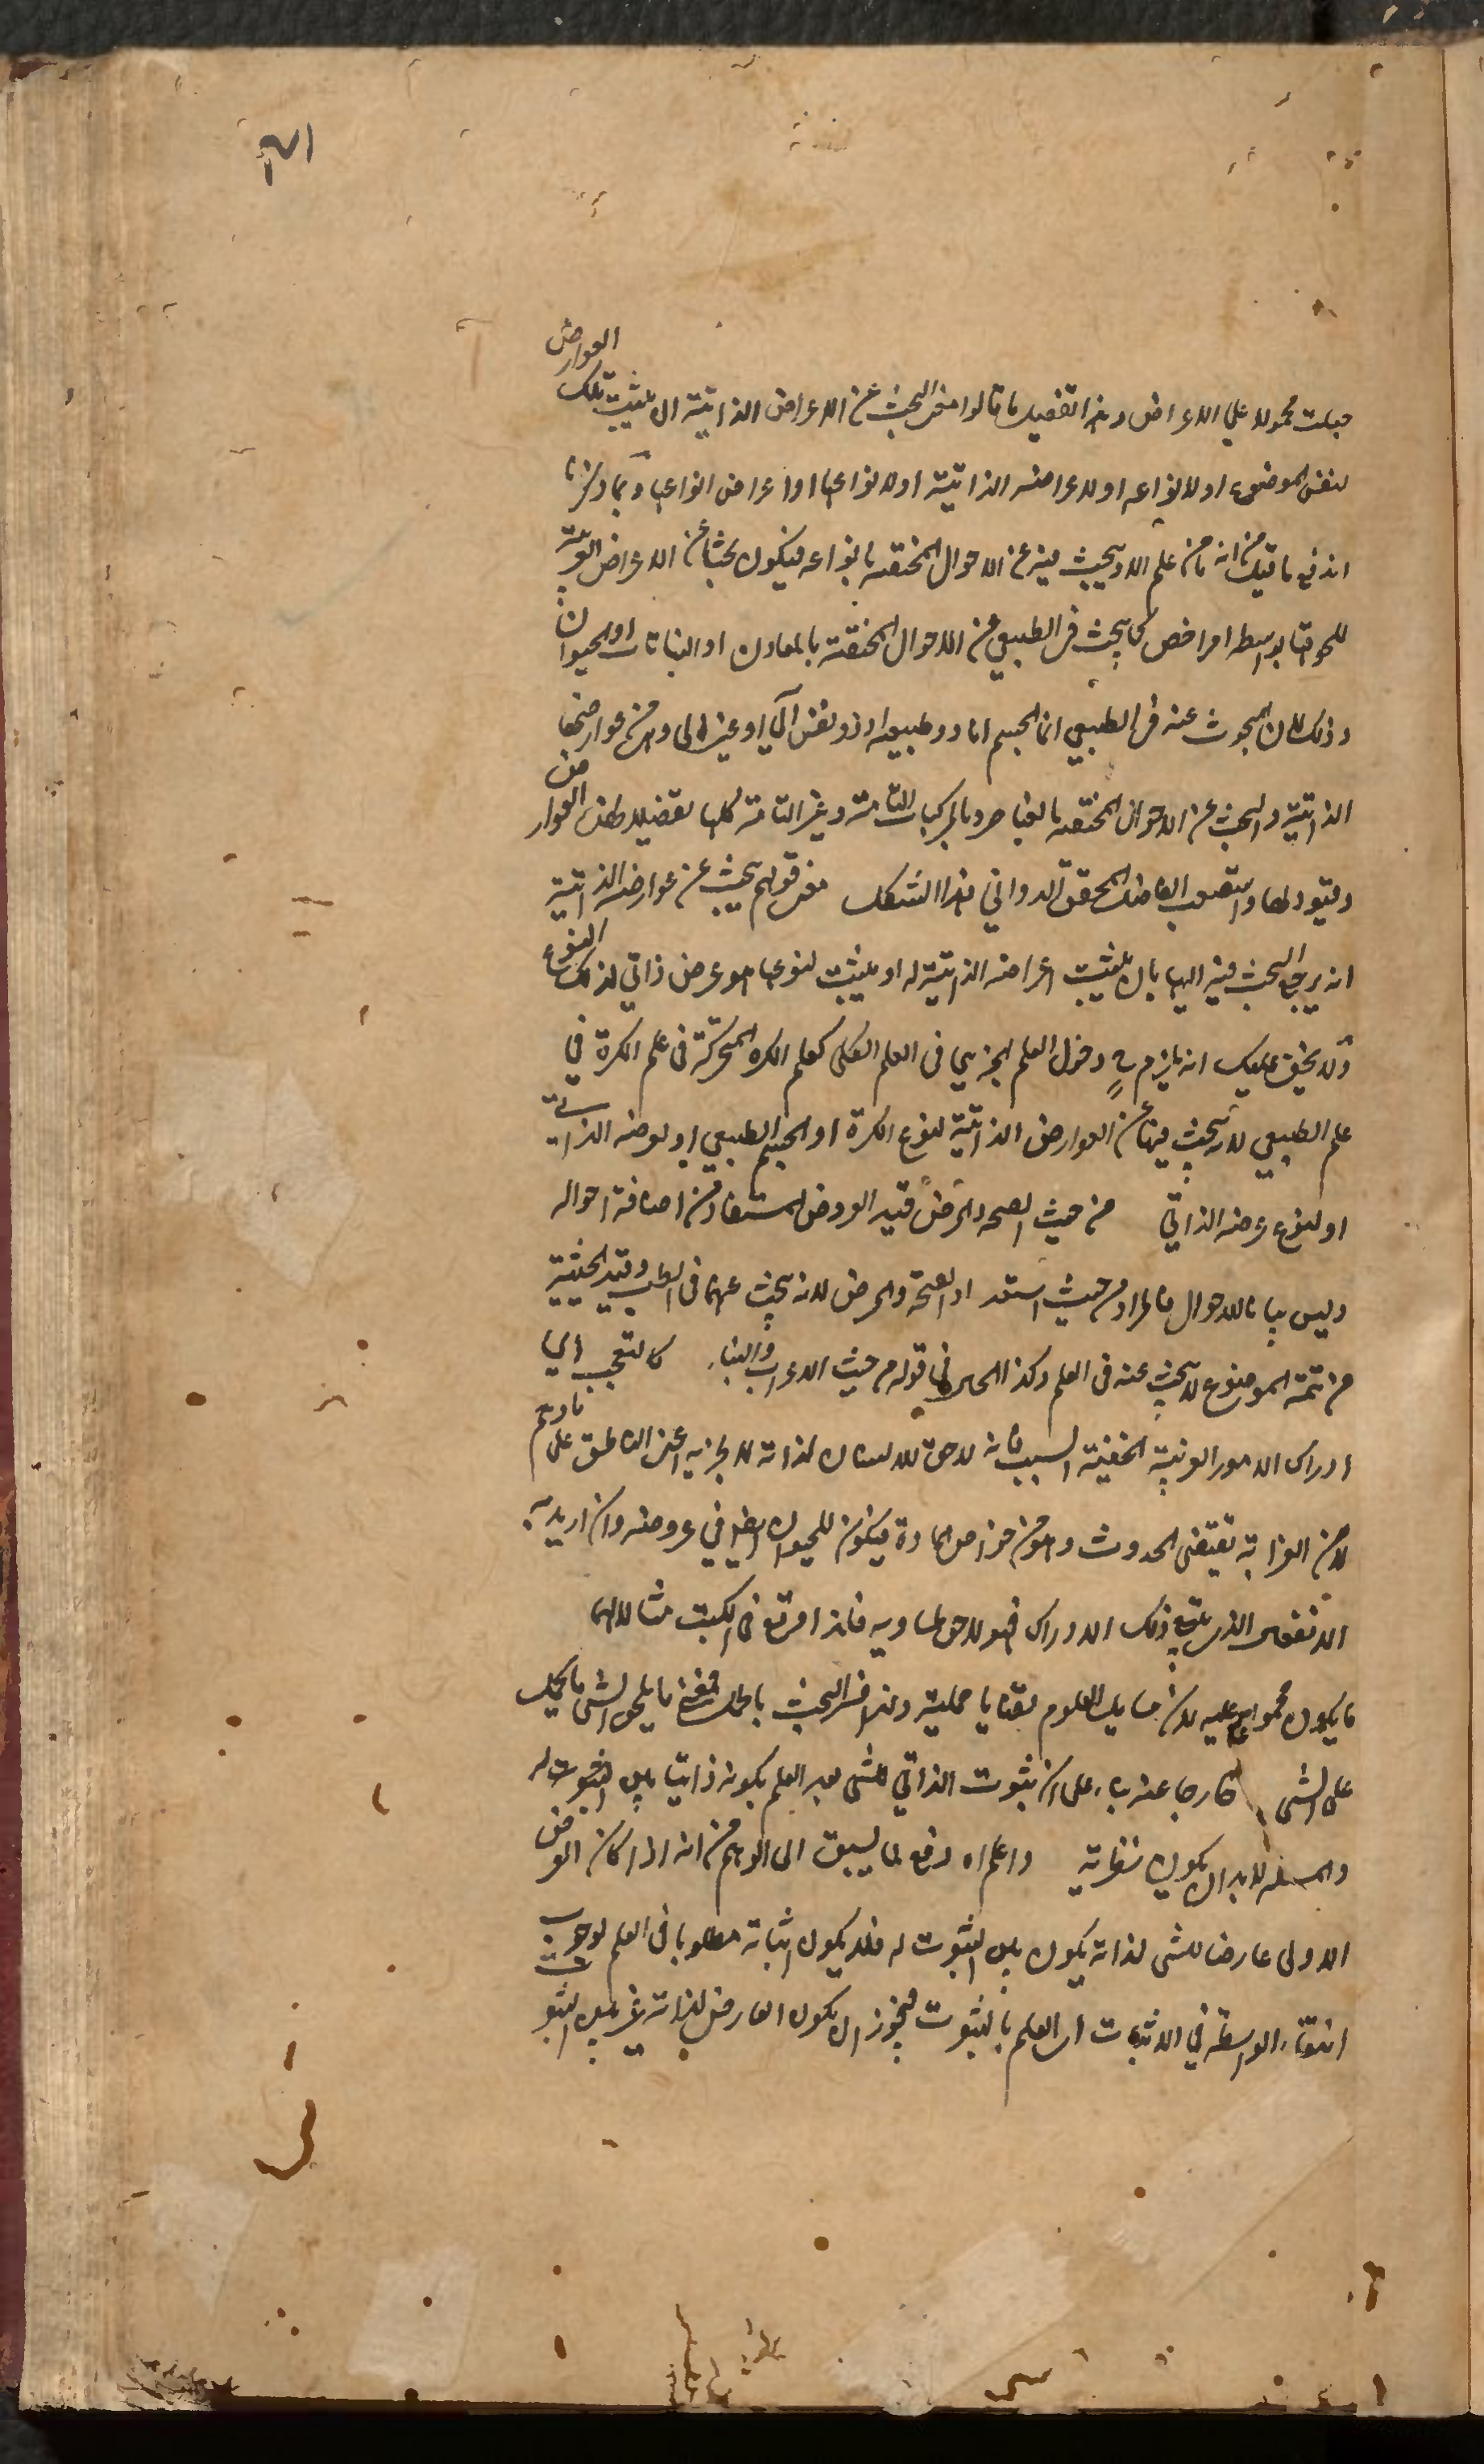 العوارض
جعلت محمولا على الاعراض وهذا تفصيل ما قالوا معنى البحث عن الاعراض الذاتية ان يثبت تلك
لنفس الموضوع او لانواعه او لاعراضه الذاتية او لانواعها او اعراض انواعها وبما ذكرنا
اندفع ما قيل من انه ما من علم الا ويبحث فيه عن الاحوال المختصة بانواعه فيكون بحثا عن الاعراض الغريبة
للحوقها بواسطة امر اخص كما يبحث في الطبيعي عن الاحوال المختصة بالمعادن او النباتات او الحيوان
وذلك لان المبحوث عنه في الطبيعي ان الجسم اما ذو طبيعة او ذو نفس آلي او غير الي وهي من عوارضها
الذاتية والبحث عن الاحوال المختصة بالعناصر وبالمركبات التامة وغير التامة كلها تفصيل لهذه العوارض
وقيود لها واستصعب الفاضل المحقق الدواني هذا الشكل معنى قولهم يبحث عن عوارضه الذاتية
انه يرجع البحث فيه اليها بان يثبت اعراضه الذاتية له او يثبت لنوعها هو عرض ذاتي لذلك النوع
ولا يخفى عليك انه يلزم ح دخول العلم الجزيي في العلم الكلي كعلم الكرة المتحركة في علم الكرة في
علم الطبيعي لانه يبحث فيها عن العوارض الذاتية لنوع الكرة او الجسم الطبيعي او لعرضه الذاتي
او لنوع عرضه الذاتي من حيث الصحة والمرض قيد العروض المستفاد من اضافة احواله
وليس بيانا للاحوال فالمراد من حيث استعد اد الصحة والمرض لانه يبحث عنهما في الطب وقيد الحيثية
من تتمة الموضوع لا يبحث عنه في العلم وكذا الحال في قوله من حيث الاعراب والبناء كالتعجب اي
ادراك الامور الغريبة الخفية السبب فانه لاحق للانسان لذاته لا لجزيه اعني الناطق على ما وهم
لان الغرابة تقتضي الحدوث وهو من خواص المادة فيكون للحيوان ايضا في عروضه وان اريد به
الانفعال الذي يتبع ذلك الادراك فهو لاحق لمساويه فلذا وقع في الكتب مثالا لهما
ما يكون محمولا عليه لان مسايل العلوم قضايا حملية ولذا فسر البحث بالحمل فمعنى ما يلحق الشي ما يحمل
على الشي خارجا عنه بناء على ان ثبوت الذاتي للشي بعد العلم بكونه ذاتيا بين الثبوت له
والمسئلة لا بد ان يكون نظرية واعلم اه دفع لما يسبق الى الوهم من انه اذا كان العرض
الاولى عارضا للشي لذاته يكون بين الثبوت له فلا يكون اثباته مطلوبا في العلم لوجوب
انتفاء الواسطة في الاثبات اي العلم بالثبوت فيجوز ان يكون العارض لذاته غير بين الثبوت